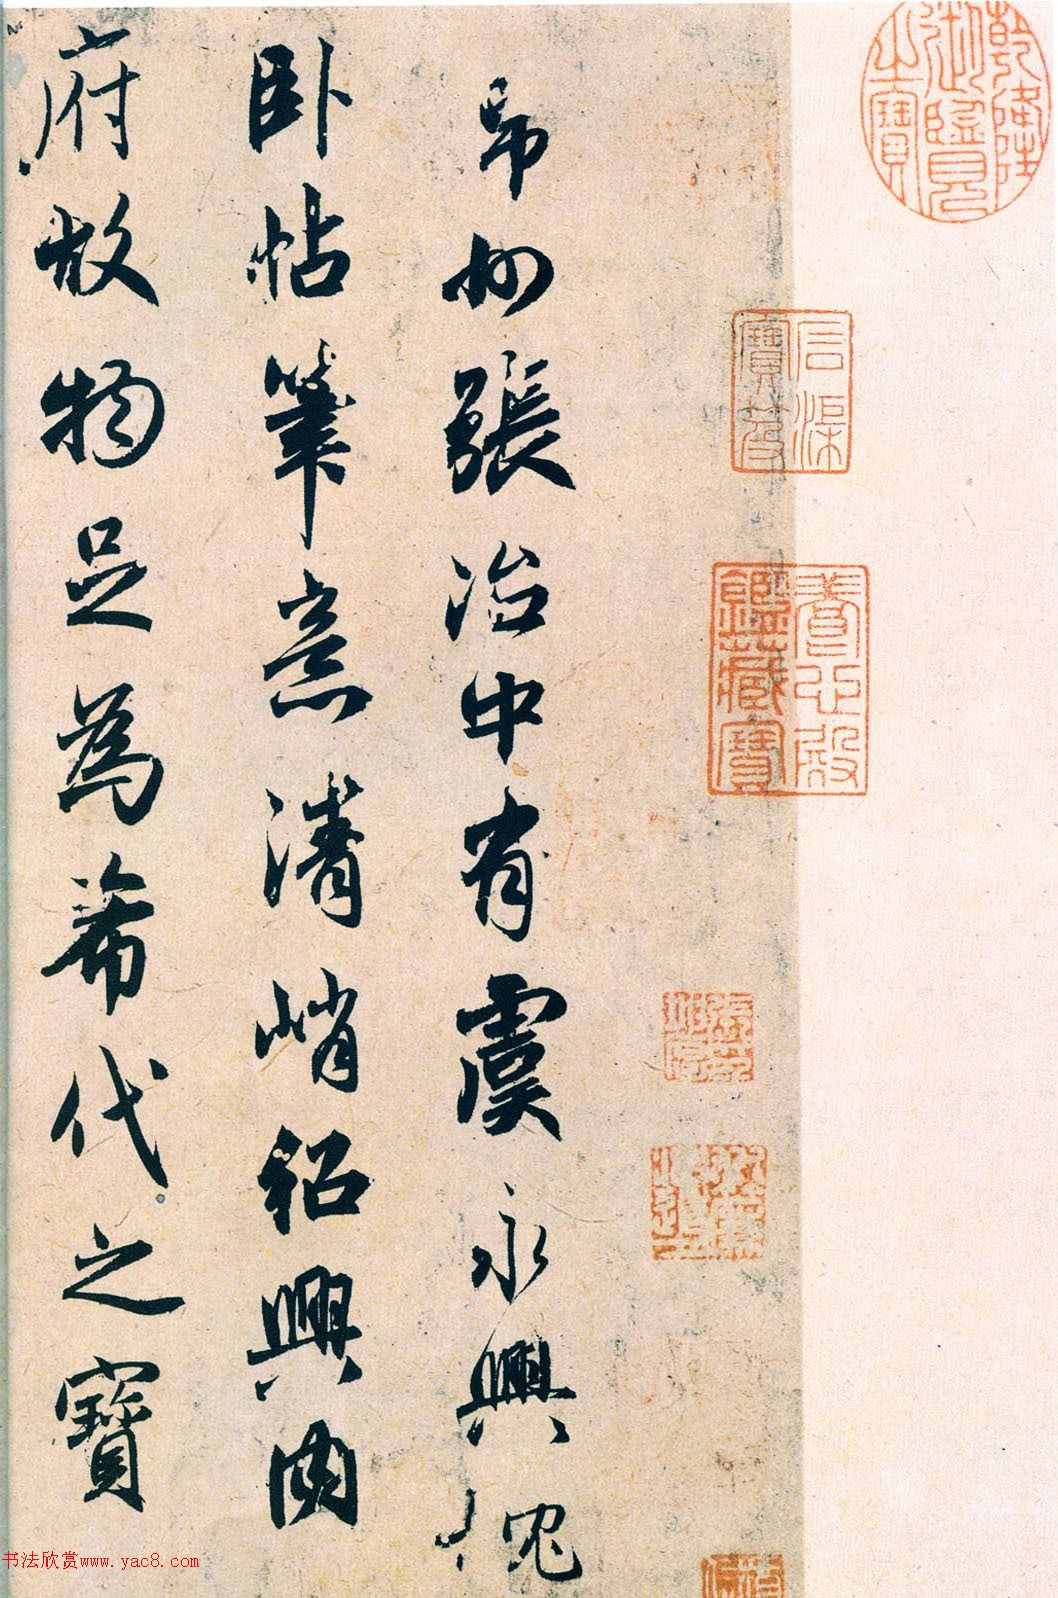 乾隆御覽之寶
石渠寶笈
養心殿鑑藏寶
州張治中有虞永興
卧帖筆意清峭紹興内
府故物足為希代之寶
书法欣赏www.yac8.com